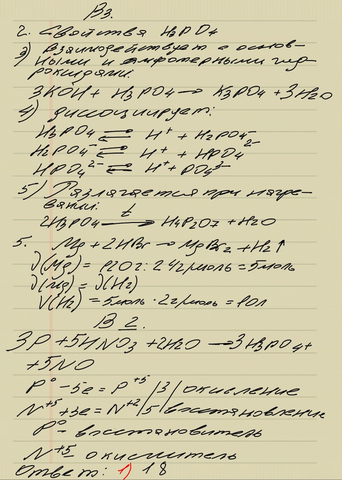 В3.
2. Свойства H₃PO₄
3) Взаимодействует с основ-
ными и амфотерными гид-
роксидами.
3KOH + H₃PO₄ → K₃PO₄ + 3H₂O
4) диссоциирует:
H₃PO₄ ⇄ H⁺ + H₂PO₄⁻
H₂PO₄⁻ ⇄ H⁺ + HPO₄²⁻
HPO₄²⁻ ⇄ H⁺ + PO₄³⁻
5) Разлагается при нагре-
вании:
2H₃PO₄ —t→ H₄P₂O₇ + H₂O
5. Mg + 2HBr → MgBr₂ + H₂↑
ν(Mg) = 120г : 24г/моль = 5моль
ν(Mg) = ν(H₂)
V(H₂) = 5моль · 2г/моль = 10л
В 2.
3P + 5HNO₃ + 2H₂O → 3H₃PO₄ +
+ 5NO
P⁰ – 5e = P⁺⁵ |3| окисление
N⁺⁵ + 3e = N⁺² |5| восстановление
P⁰ – восстановитель
N⁺⁵ – окислитель
Ответ: 1) 18